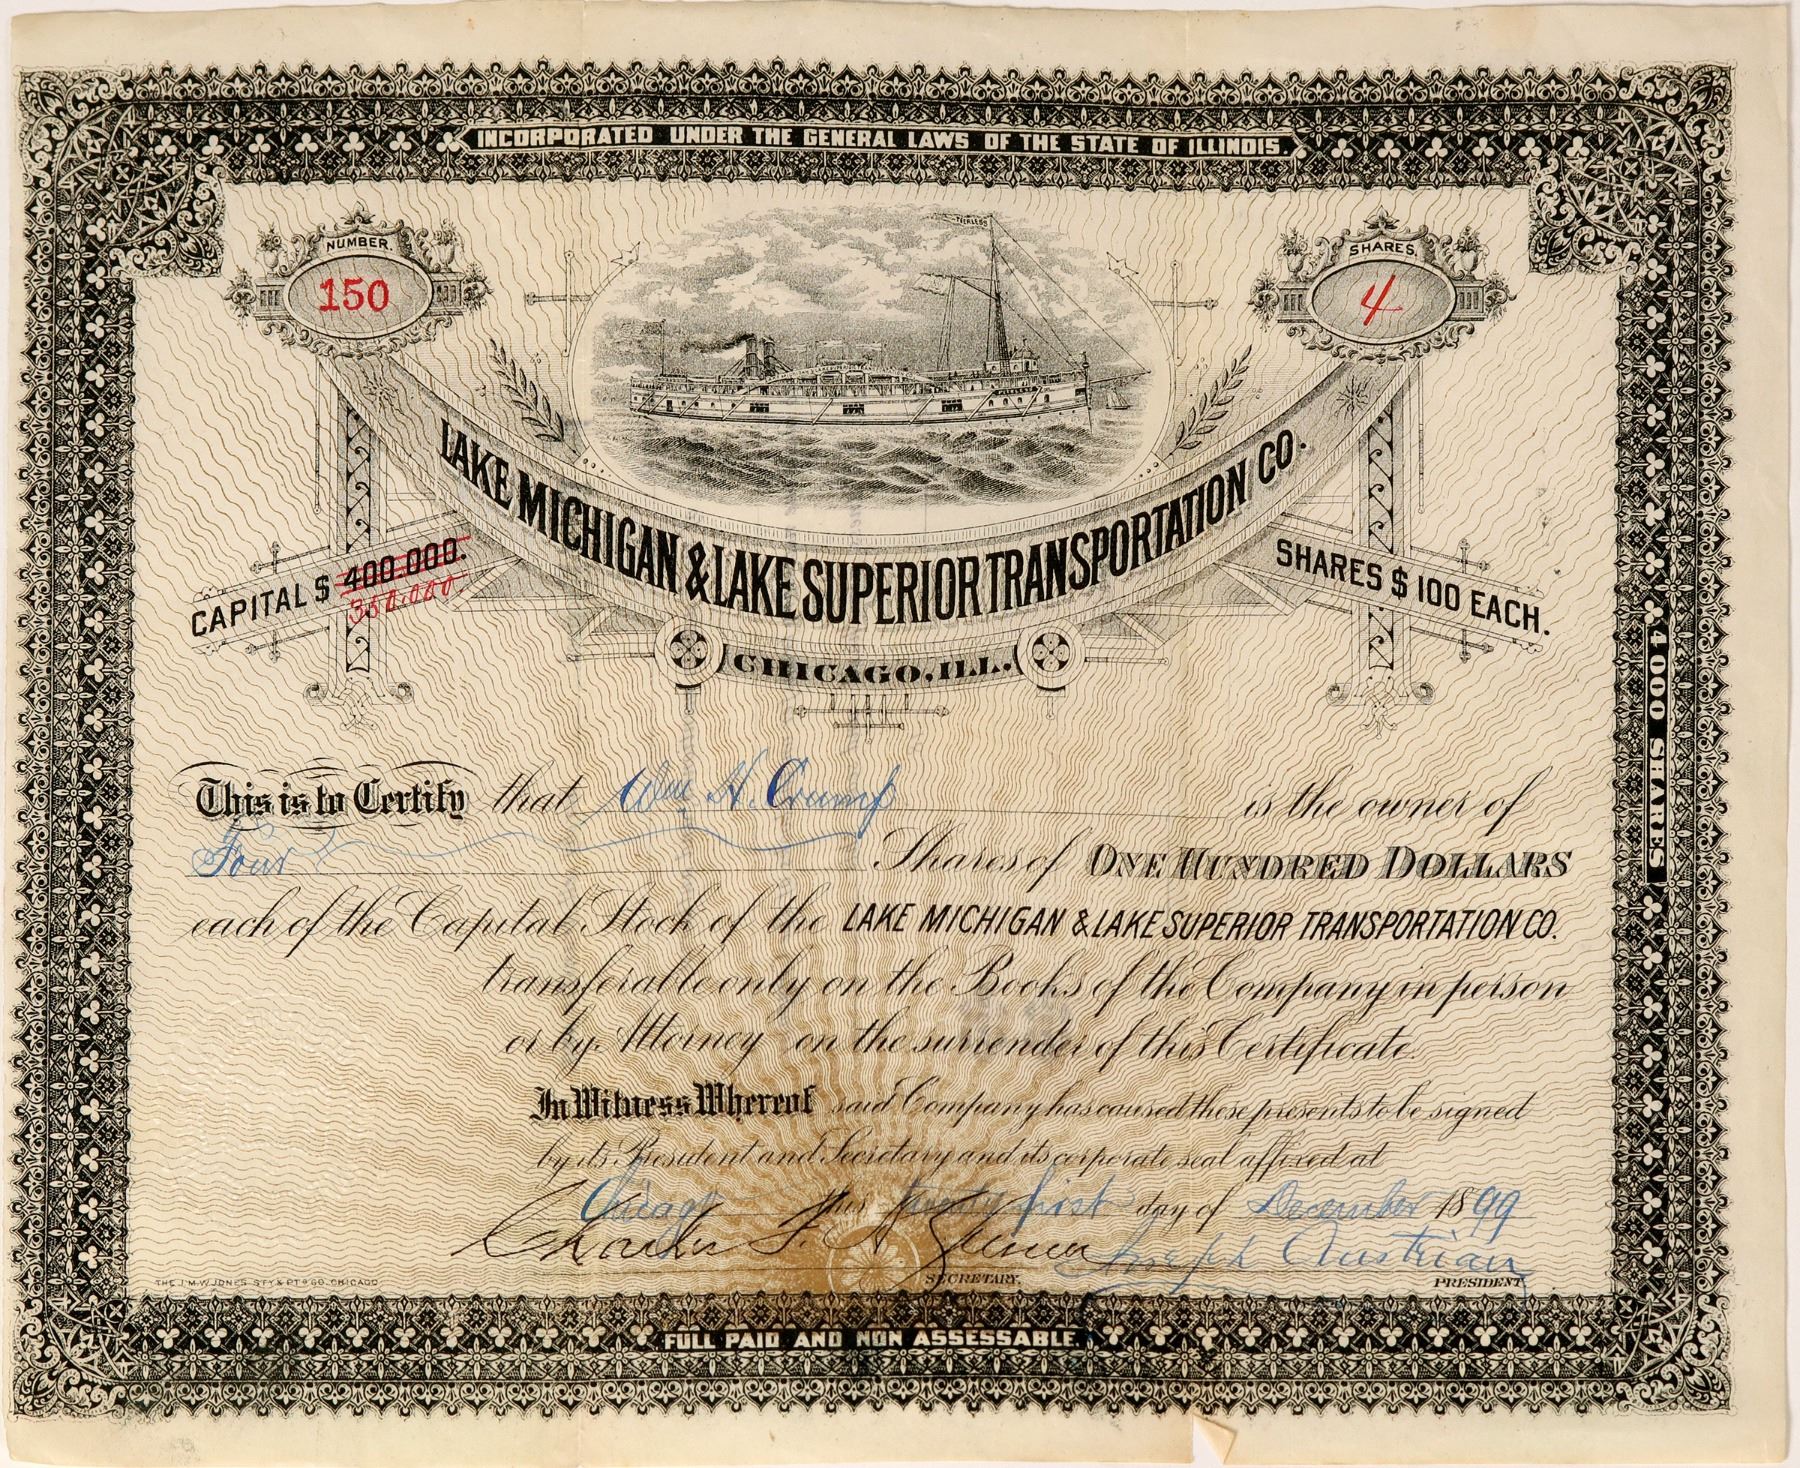 INCORPORATED UNDER THE GENERAL LAWS OF THE STATE OF ILLINOIS.
NUMBER
150
PEERLESS
SHARES
4
LAKE MICHIGAN & LAKE SUPERIOR TRANSPORTATION CO.
CAPITAL $ 400.000.
350.000.
SHARES $ 100 EACH.
CHICAGO, ILL.
4000 SHARES
This is to Certify that Wm H. Crump is the owner of
Four Shares of ONE HUNDRED DOLLARS
each of the Capital Stock of the LAKE MICHIGAN & LAKE SUPERIOR TRANSPORTATION CO.
transferable only on the Books of the Company in person
or by Attorney on the surrender of this Certificate.
In Witness Whereof said Company has caused these presents to be signed
by its President and Secretary and its corporate seal affixed at
Chicago this twenty first day of December 1899
Charles F. A. Joseph Austrian
THE J.M.W. JONES STY & PTG CO. CHICAGO
SECRETARY.
PRESIDENT
FULL PAID AND NON ASSESSABLE.